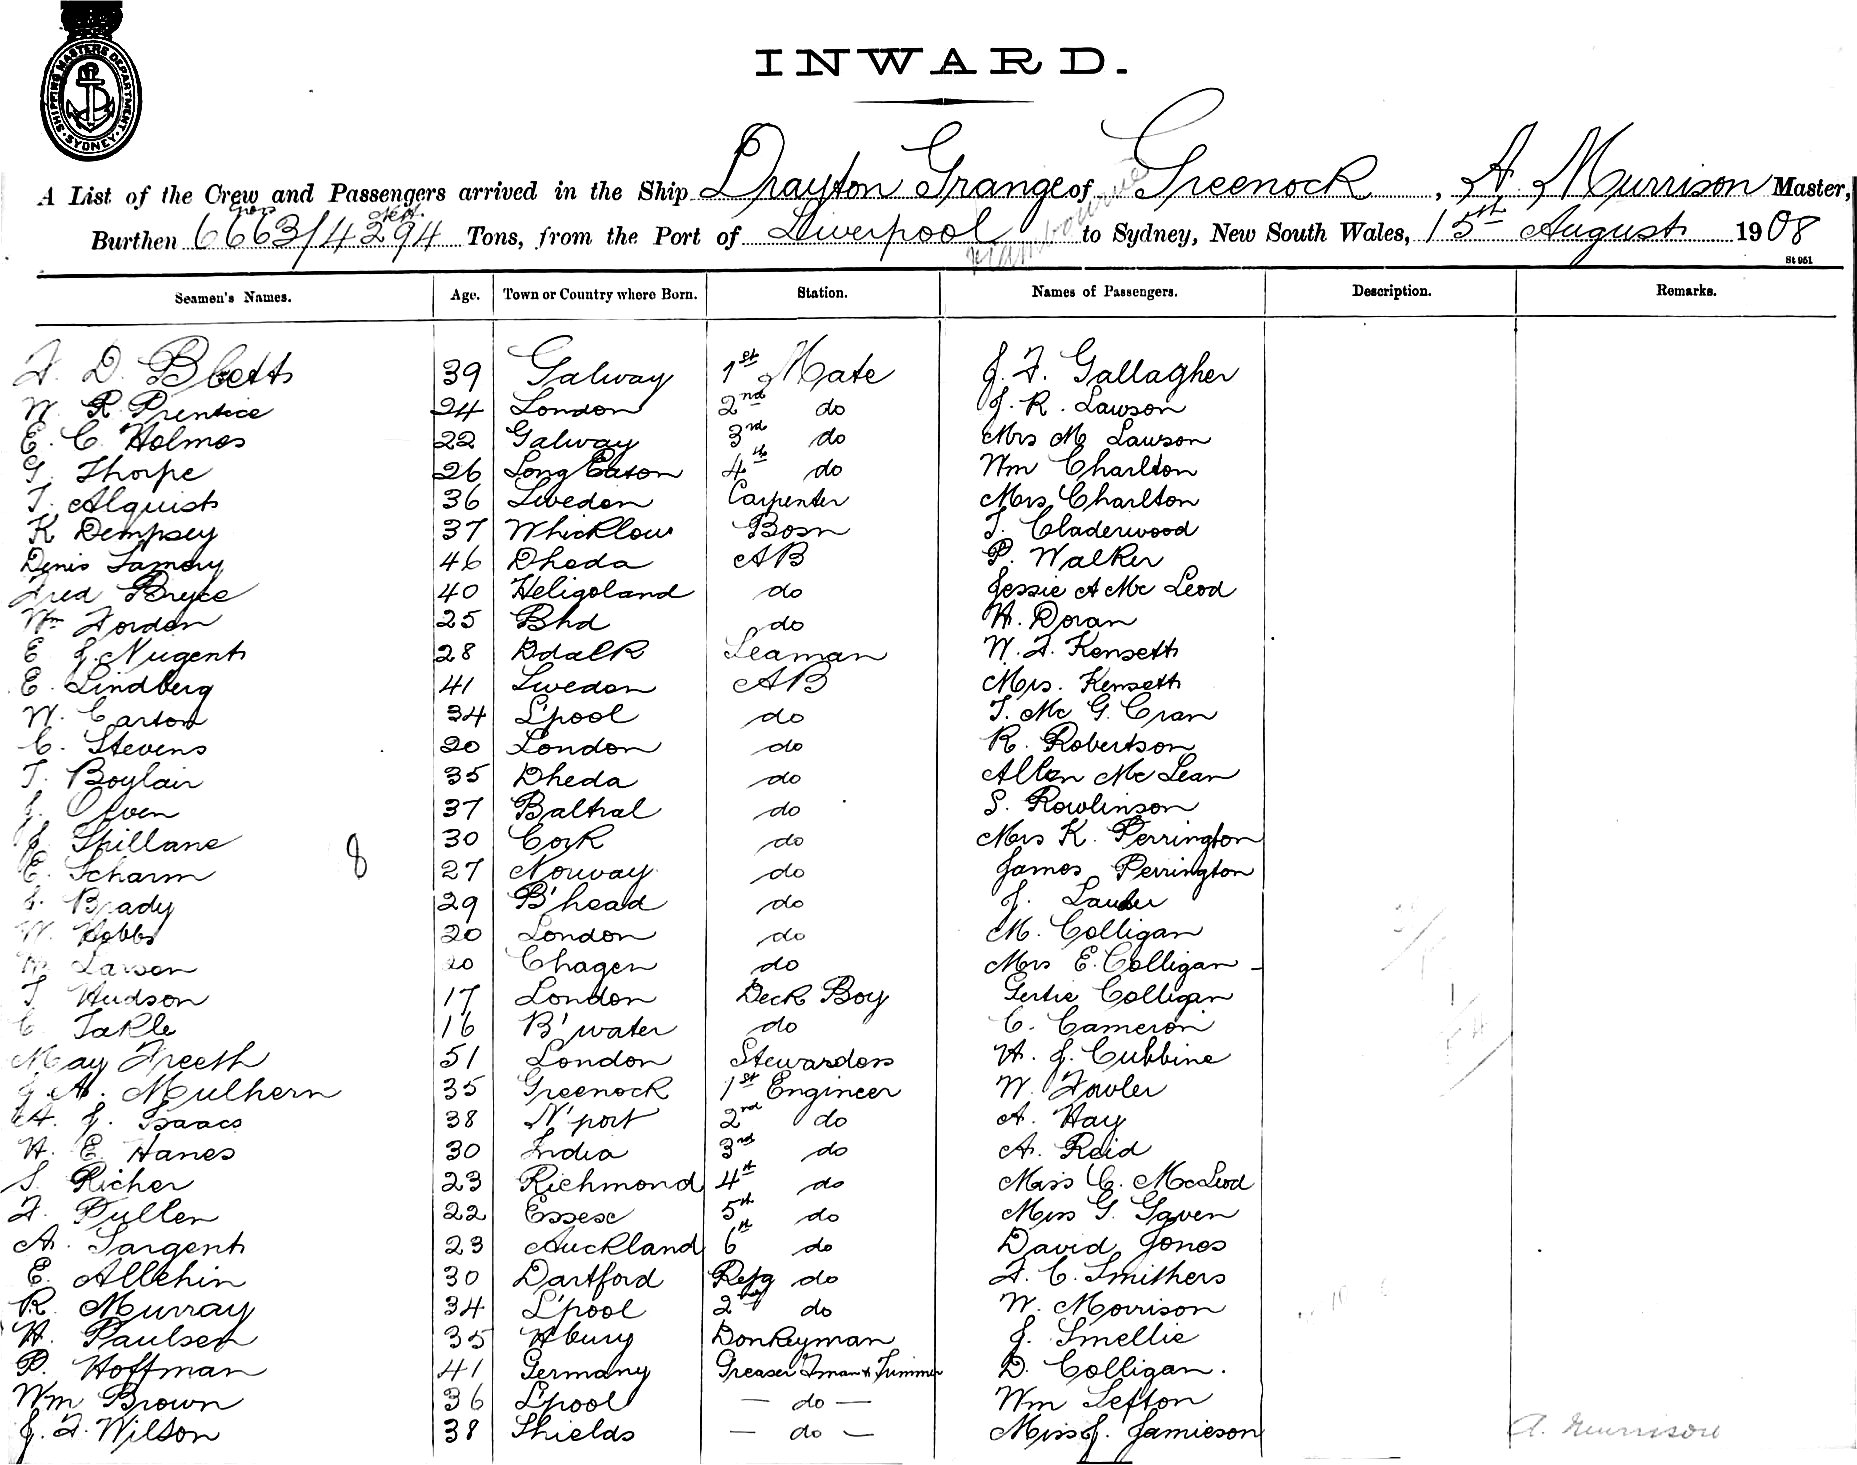 SHIPPING MASTERS DEPARTMENT · SYDNEY ·
INWARD.
A List of the Crew and Passengers arrived in the Ship Drayton Grange of Greenock, A. Murrison Master,
Burthen 6663/4294 Tons, from the Port of Liverpool to Sydney, New South Wales, 15st August 1908
St 951
Seamen's Names. Age. Town or Country where Born. Station. Names of Passengers. Description. Remarks.
F. D. Bbetts 39 Galway 1st Mate J. F. Gallagher
W. R. Prentice 24 London 2nd do J. R. Lawson
E. C. Holmes 22 Galway 3rd do Mrs M Lawson
G. Thorpe 26 Long Eaton 4th do Wm Charlton
T. Alquist 36 Sweden Carpenter Mrs Charlton
K Dempsey 37 Whicklow Bosn T. Claderwood
Denis 46 Dheda AB P. Walker
Fred Bryce 40 Heligoland do Jessie A Mc Leod
Wm Forden 25 Bhd do H. Doran
E J. Nugent 28 Ddalk Seaman W. F. Kensett
E. Lindberg 41 Sweden AB Mrs. Kensett
W. Carton 34 L'pool do T. Mc G. Cran
C. Stevens 20 London do R. Robertson
T. Boylair 35 Dheda do Allen Mc Lean
J. Owen 37 Baltral do S. Rowlinson
J. Spillane 30 Cork do Mrs K. Perrington
8
E. Scharm 27 Norway do James Perrington
J. Brady 29 B'head do J. Lauder
W. Hobbs 20 London do M. Colligan
M. Larsen 20 Chagen do Mrs E. Colligan
T Hudson 17 London Deck Boy Gertie Colligan
C. Takle 16 B'water do C. Cameron
May Freeth 51 London Stewardess H. J. Cubbine
J A. Mulhern 35 Greenock 1st Engineer W. Fowler
A. J. Isaacs 38 N'port 2nd do A. Hay
H. E. Hanes 30 India 3rd do A. Reid
S. Richer 23 Richmond 4th do Miss C. McLeod
F. Pullen 22 Essesc 5th do Miss G. Gaven
A. Sargent 23 Auckland 6th do David Jones
E. Allchin 30 Dartford Refg do F. C. Smithers
R. Murray 34 L'pool 2nd do W. Morrison
H. Paulsen 35 Hburg Donkeyman J. Smellie
P. Hoffman 41 Germany Greaser Fman & Trimmer D. Colligan.
Wm Brown 36 L'pool — do — Wm Sefton
J. F. Wilson 38 Shields — do — Miss J. Jamieson
A. Murrison